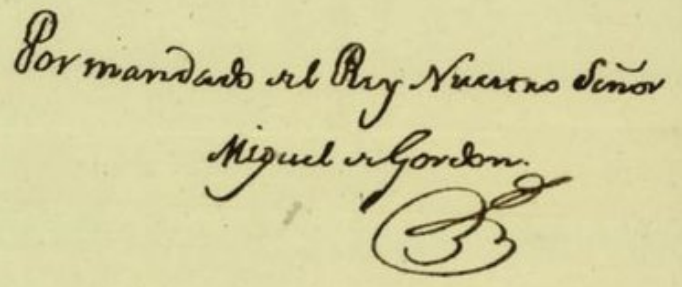 Por mandado del Rey Nuestro Señor
Miguel de Gordon.